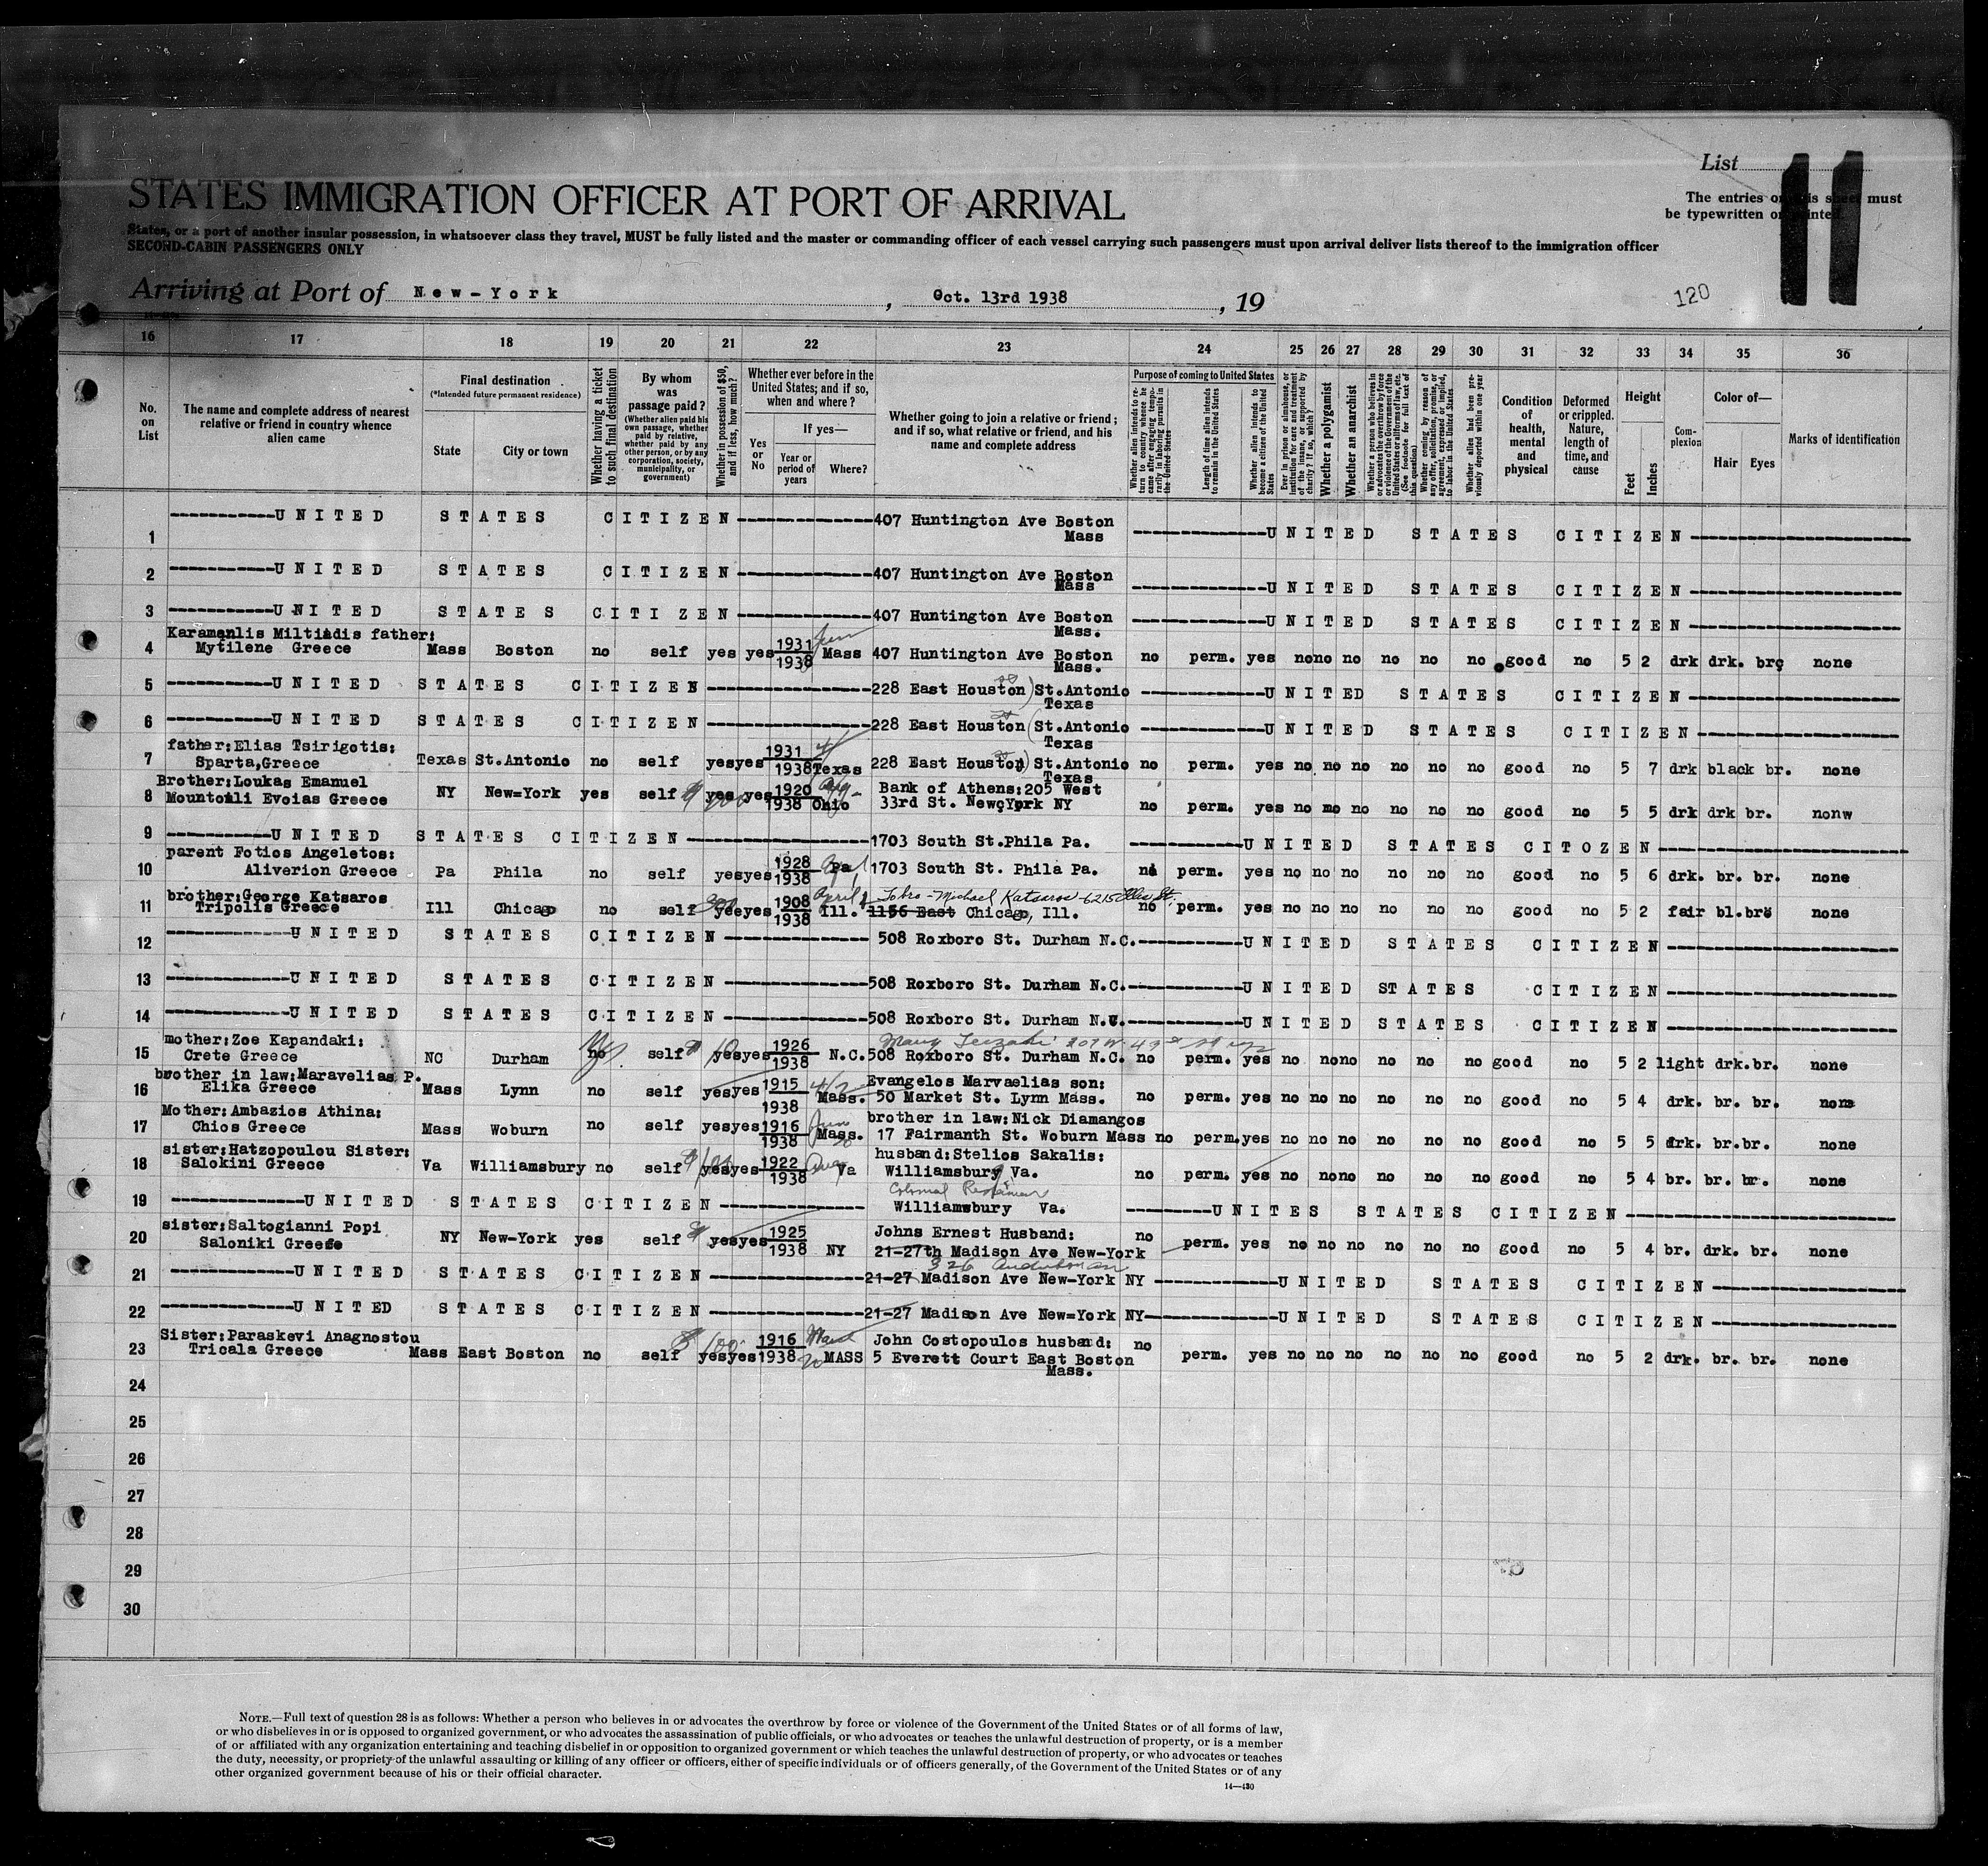 List
11
STATES IMMIGRATION OFFICER AT PORT OF ARRIVAL
The entries on this sheet must
be typewritten or printed.
States, or a port of another insular possession, in whatsoever class they travel, MUST be fully listed and the master or commanding officer of each vessel carrying such passengers must upon arrival deliver lists thereof to the immigration officer
SECOND-CABIN PASSENGERS ONLY
Arriving at Port of New-York, Oct. 13rd 1938, 19
120
16 17 18 19 20 21 22 23 24 25 26 27 28 29 30 31 32 33 34 35 36
No. on List
The name and complete address of nearest relative or friend in country whence alien came
Final destination
(*Intended future permanent residence)
State City or town
Whether having a ticket to such final destination
By whom was passage paid?
(Whether alien paid his own passage, whether paid by relative, whether paid by any other person, or by any corporation, society, municipality, or government)
Whether in possession of $50, and if less, how much?
Whether ever before in the United States; and if so, when and where?
Yes or No
If yes—
Year or period of years
Where?
Whether going to join a relative or friend; and if so, what relative or friend, and his name and complete address
Purpose of coming to United States
Whether alien intends to return to country whence he came after engaging temporarily in laboring pursuits in the United States
Length of time alien intends to remain in the United States
Whether alien intends to become a citizen of the United States
Ever in prison or almshouse, or institution for care and treatment of the insane, or supported by charity? If so, which?
Whether a polygamist
Whether an anarchist
Whether a person who believes in or advocates the overthrow by force or violence of the Government of the United States or all forms of law, etc. (See footnote for full text of this question)
Whether coming by reason of any offer, solicitation, promise, or agreement, expressed or implied, to labor in the United States
Whether alien had been previously deported within one year
Condition of health, mental and physical
Deformed or crippled. Nature, length of time, and cause
Height
Feet Inches
Complexion
Color of—
Hair Eyes
Marks of identification
1 UNITED STATES CITIZEN 407 Huntington Ave Boston Mass UNITED STATES CITIZEN
2 UNITED STATES CITIZEN 407 Huntington Ave Boston Mass UNITED STATES CITIZEN
3 UNITED STATES CITIZEN 407 Huntington Ave Boston Mass. UNITED STATES CITIZEN
4 Karamanlis Miltiadis father: Mytilene Greece Mass Boston no self yes yes 1931 1938 Mass 407 Huntington Ave Boston Mass. no perm. yes no no no no no no good no 5 2 drk drk. brç none
5 UNITED STATES CITIZEN 228 East Houston St.Antonio Texas UNITED STATES CITIZEN
6 UNITED STATES CITIZEN 228 East Houston St.Antonio Texas UNITED STATES CITIZEN
7 father:Elias Tsirigotis: Sparta,Greece Texas St.Antonio no self yes yes 1931 1938 Texas 228 East Houston St.Antonio Texas no perm. yes no no no no no no good no 5 7 drk black br. none
8 Brother:Loukas Emanuel Mountoili Evoias Greece NY New=York yes self yes yes 1920 1938 Ohio Bank of Athens:205 West 33rd St. NewçYprk NY no perm. yes no mo no no no no good no 5 5 drk drk br. nonw
9 UNITED STATES CITIZEN 1703 South St.Phila Pa. UNITED STATES CITOZEN
10 parent Fotios Angeletos: Aliverion Greece Pa Phila no self yes yes 1928 1938 Pa 1703 South St. Phila Pa. perm. yes no no no no no no good no 5 6 drk. br. br. none
11 brother:George Katsaros Tripolis Greece Ill Chicago no self 1908 1938 April Ill. To bro - Michael Katsaros - 6215 Ellis St. 1156 East Chicago, Ill. no perm. yes no no no no no no good no 5 2 fair bl. none
12 UNITED STATES CITIZEN 508 Roxboro St. Durham N.C. UNITED STATES CITIZEN
13 UNITED STATES CITIZEN 508 Roxboro St. Durham N.C. UNITED STATES CITIZEN
14 UNITED STATES CITIZEN 508 Roxboro St. Durham N.C. UNITED STATES CITIZEN
15 mother:Zoe Kapandaki: Crete Greece NC Durham no self yes yes 1926 1938 N.C. 508 Roxboro St. Durham N.C. no perm. yes no no no no no no good no 5 2 light drk.br. none
16 brother in law:Maravelias P. Elika Greece Mass Lynn no self yes yes 1915 1938 Mass. Evangelos Marvaelias son: 50 Market St. Lynn Mass. no perm. yes no no no no no no good no 5 4 drk. br. br. none
17 Mother:Ambazios Athina: Chios Greece Mass Woburn no self yes yes 1916 1938 Mass. brother in law:Nick Diamangos 17 Fairmanth St. Woburn Mass no perm. yes no no no no no no good no 5 5 drk. br.br. none
18 sister:Hatzopoulou Sister: Salokini Greece Va Williamsbury no self yes yes 1922 1938 Aug Va husband:Stelios Sakalis: Williamsbury Va. no perm. yes no no no no no no good no 5 4 br. br. br. none
19 UNITED STATES CITIZEN Colonial Williamsbury Va. UNITES STATES CITIZEN
20 sister:Saltogianni Popi Saloniki Greece NY New-York yes self yes yes 1925 1938 NY Johns Ernest Husband: 21-27th Madison Ave New-York no perm. yes no no no no no no good no 5 4 br. drk. br. none
21 UNITED STATES CITIZEN 326 21-27 Madison Ave New-York NY UNITED STATES CITIZEN
22 UNITED STATES CITIZEN 21-27 Madison Ave New=York NY UNITED STATES CITIZEN
23 Sister:Paraskevi Anagnostou Tricala Greece Mass East Boston no self 100 yes yes 1916 1938 March MASS John Costopoulos husband: 5 Everett Court East Boston Mass. no perm. yes no no no no no no good no 5 2 drk. br. br. none
24
25
26
27
28
29
30
NOTE.—Full text of question 28 is as follows: Whether a person who believes in or advocates the overthrow by force or violence of the Government of the United States or of all forms of law,
or who disbelieves in or is opposed to organized government, or who advocates the assassination of public officials, or who advocates or teaches the unlawful destruction of property, or is a member
of or affiliated with any organization entertaining and teaching disbelief in or opposition to organized government or which teaches the unlawful destruction of property, or who advocates or teaches
the duty, necessity, or propriety of the unlawful assaulting or killing of any officer or officers, either of specific individuals or of officers generally, of the Government of the United States or of any
other organized government because of his or their official character.
14—430